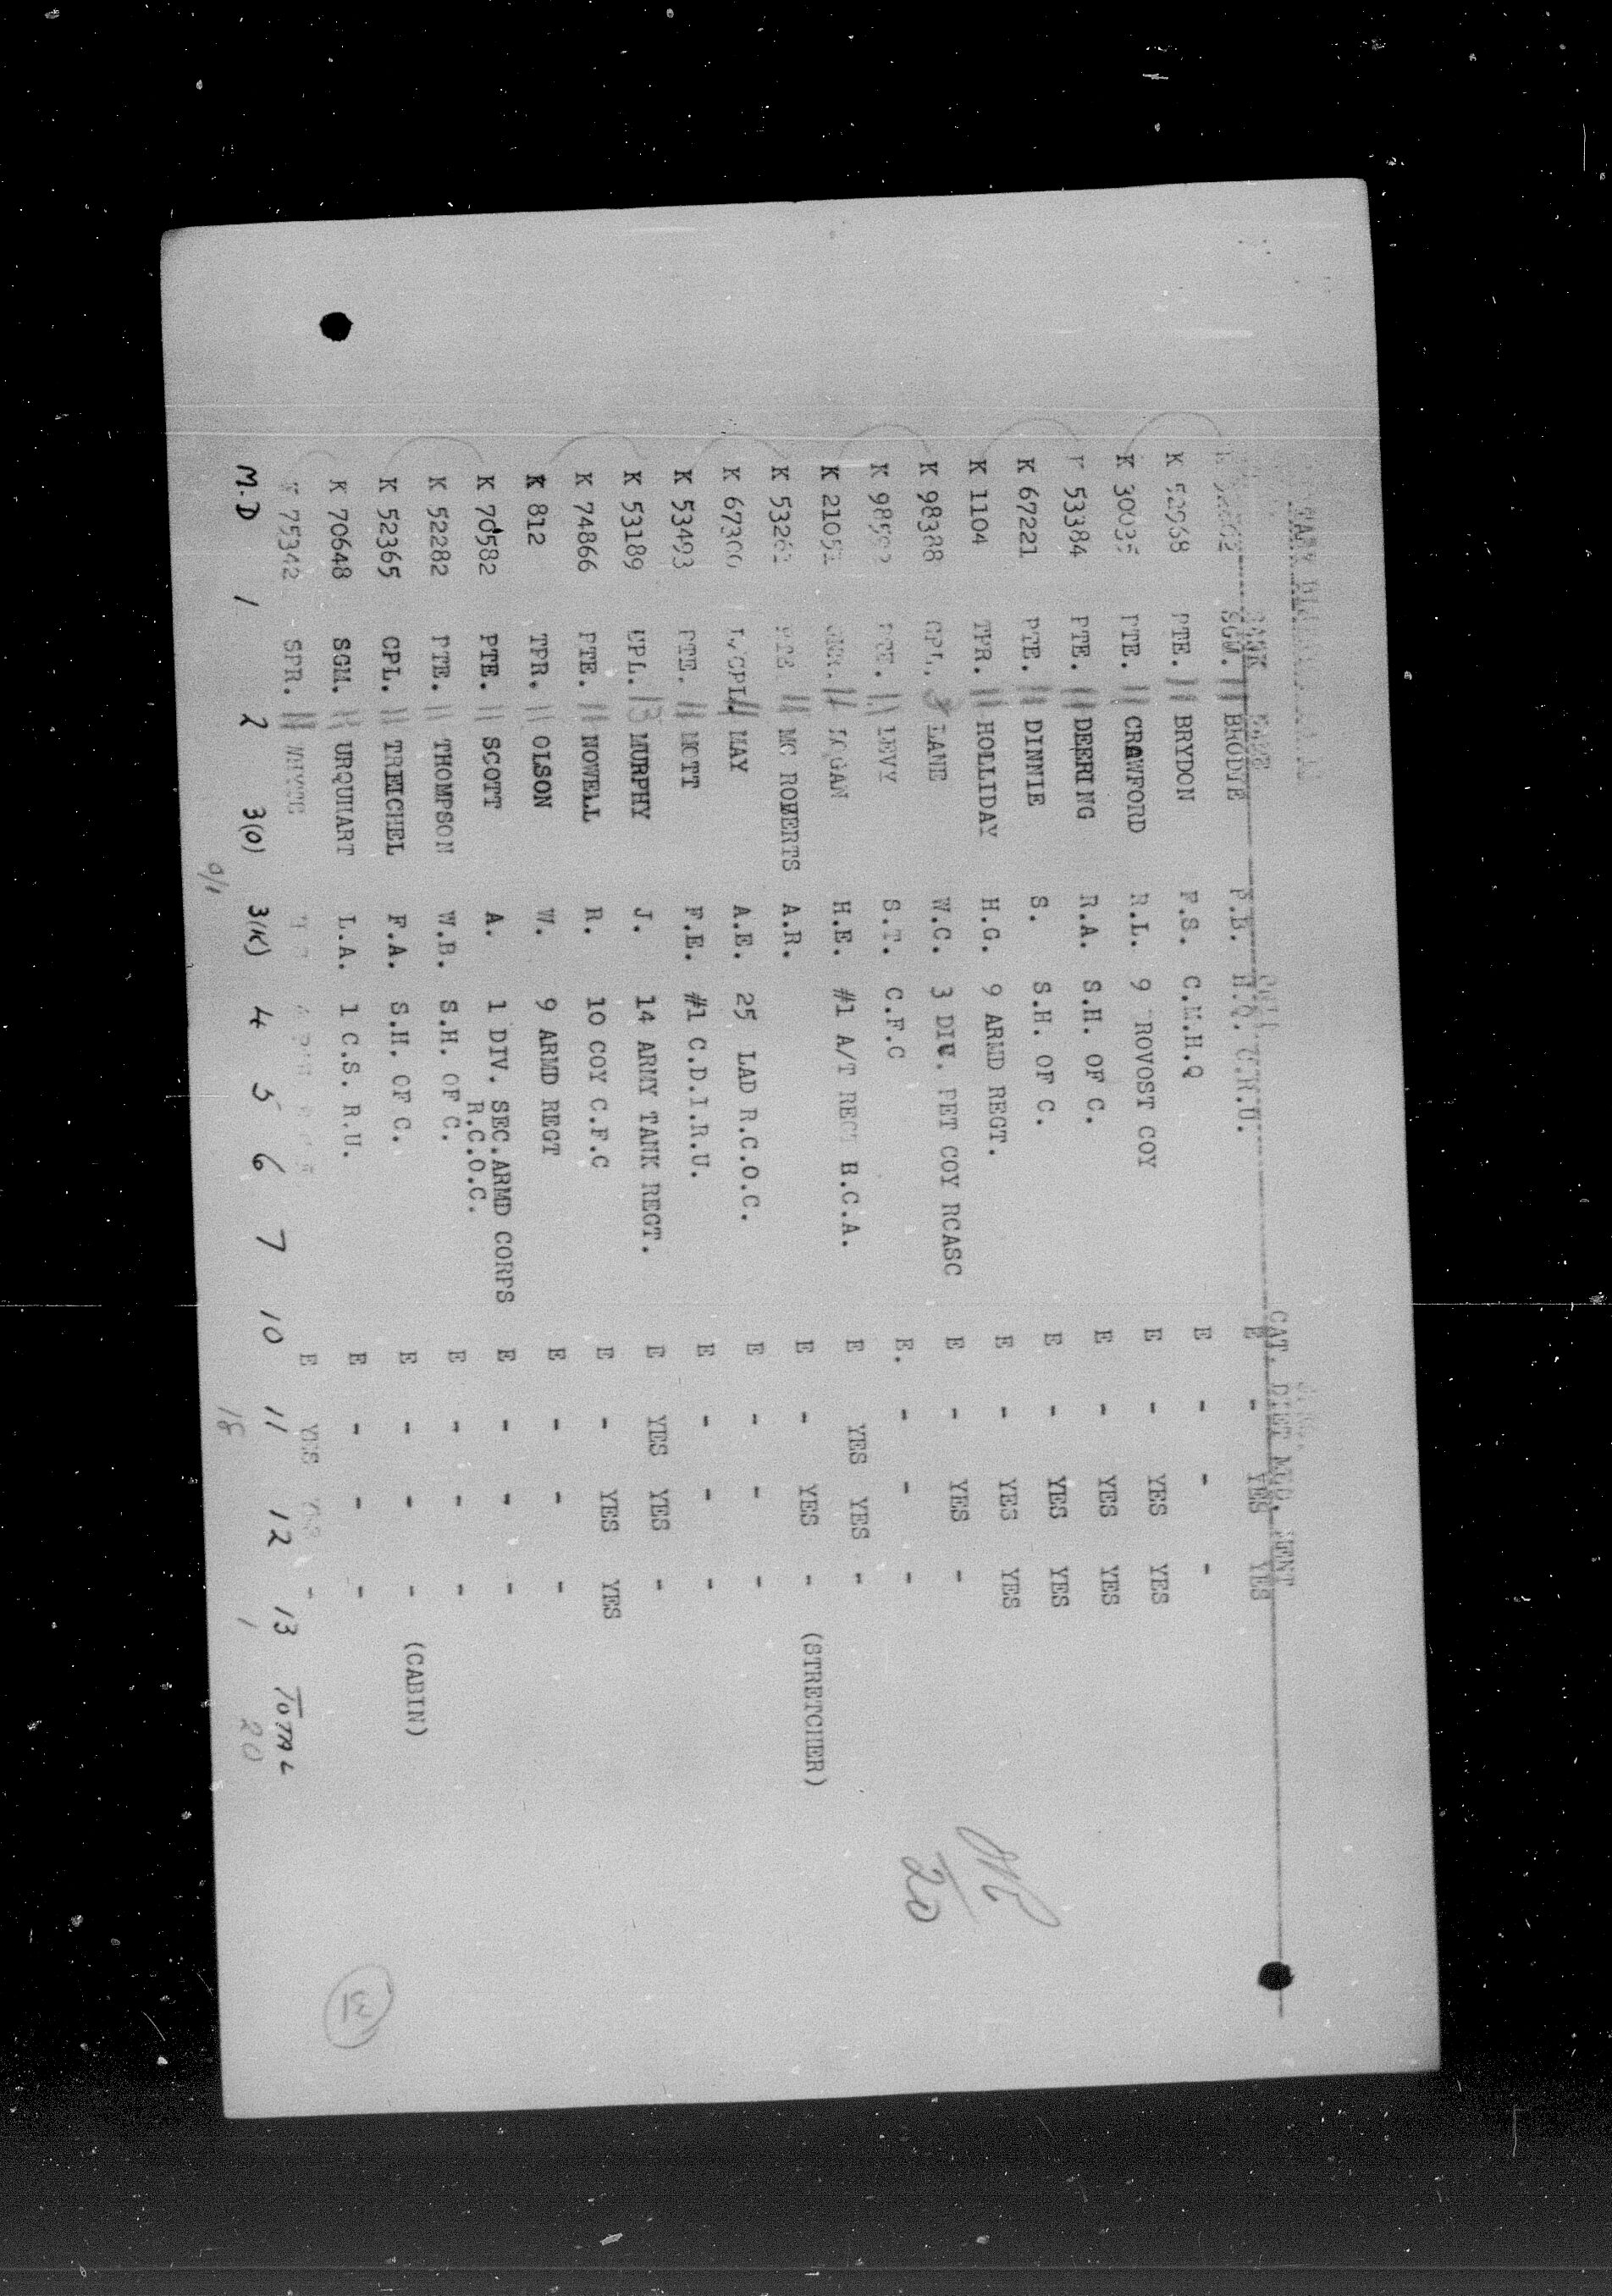 RANK NAME UNIT CAT. DIET MED. MENT
SGM. 11 BRODIE F.E. H.Q. C.R.U. E - YES YES
K 52968 PTE. 11 BRYDON F.S. C.M.H.Q E - - -
K 30035 PTE. 11 CRAWFORD R.L. 9 PROVOST COY E - YES YES
K 53384 PTE. 11 DEERING R.A. S.H. OF C. E - YES YES
K 67221 PTE. 11 DINNIE S. S.H. OF C. E - YES YES
K 1104 TPR. 11 HOLLIDAY H.G. 9 ARMD REGT. E - YES YES
K 98388 CPL. 3 LANE W.C. 3 DIV. PET COY RCASC E - YES -
K PTE. 11 LEVY S.T. C.F.C E. - - -
K 11 H.E. #1 A/T REGT R.C.A. E YES YES -
K PTE 11 MC ROBERTS A.R. E - YES - (STRETCHER)
K L/CPL. 11 MAY A.E. 25 LAD R.C.O.C. E - - -
K 53493 PTE. 11 MOTT F.E. #1 C.D.I.R.U. E - - -
K 53189 CPL. 13 MURPHY J. 14 ARMY TANK REGT. E YES YES -
K 74866 PTE. 11 NOWELL R. 10 COY C.F.C E - YES YES
K 812 TPR. 11 OLSON W. 9 ARMD REGT E - - -
K 70582 PTE. 11 SCOTT A. 1 DIV. SEC.ARMD CORPS E - - -
R.C.O.C.
K 52282 PTE. 11 THOMPSON W.B. S.H. OF C. E - - -
K 52365 CPL. 11 TREICHEL F.A. S.H. OF C. E - - - (CABIN)
K 70648 SGM. 11 URQUHART L.A. 1 C.S. R.U. E - - -
K 75342 SPR. 11 E YES YES -
M.D 1 2 3(O) 3(K) 4 5 6 7 10 11 12 13 TOTAL
0/1 18 1 20
20
31